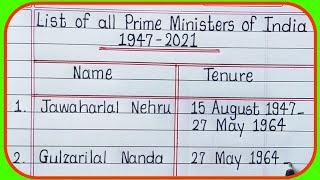 List of all Prime Ministers of India
1947-2021
Name Tenure
1. Jawaharlal Nehru 15 August 1947-
27 May 1964
2. Gulzarilal Nanda 27 May 1964